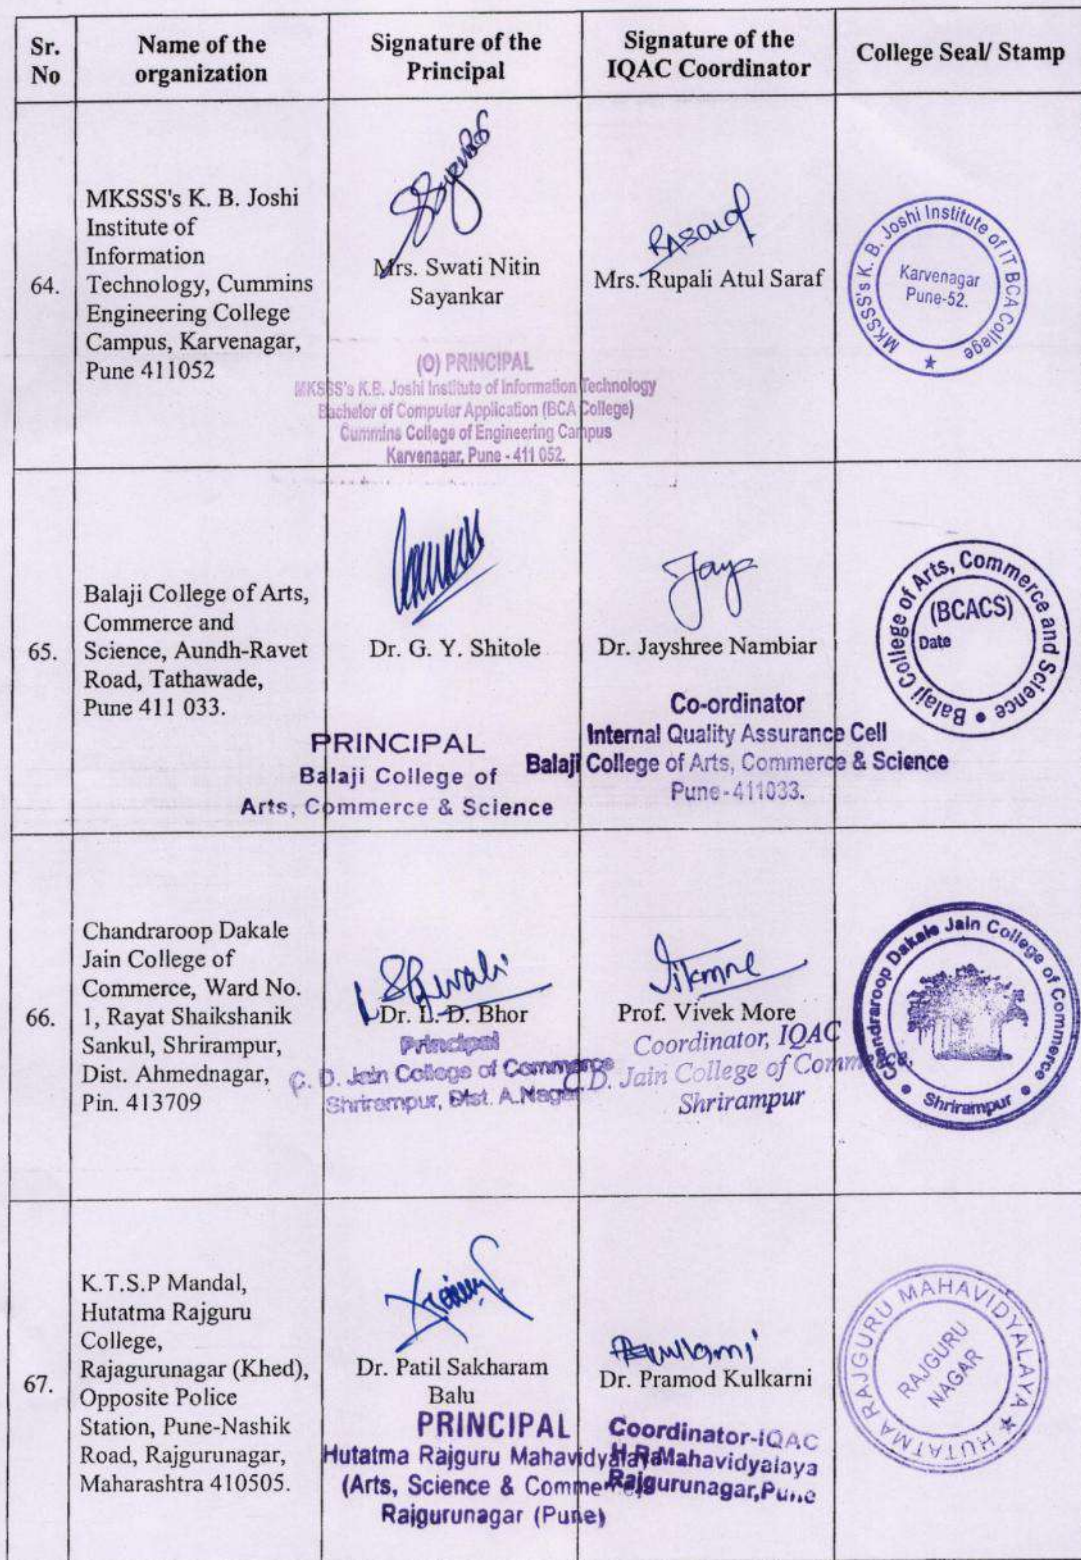 Sr. No
Name of the organization
Signature of the Principal
Signature of the IQAC Coordinator
College Seal/ Stamp
64.
MKSSS's K. B. Joshi
Institute of
Information
Technology, Cummins
Engineering College
Campus, Karvenagar,
Pune 411052
Mrs. Swati Nitin
Sayankar
(O) PRINCIPAL
MKSSS's K.B. Joshi Institute of Information Technology
Bachelor of Computer Application (BCA College)
Cummins College of Engineering Campus
Karvenagar, Pune - 411 052.
Mrs. Rupali Atul Saraf
MKSSS's K. B. Joshi Institute of IT BCA College
Karvenagar
Pune-52.
65.
Balaji College of Arts,
Commerce and
Science, Aundh-Ravet
Road, Tathawade,
Pune 411 033.
Dr. G. Y. Shitole
PRINCIPAL
Balaji College of
Arts, Commerce & Science
Jaya
Dr. Jayshree Nambiar
Co-ordinator
Internal Quality Assurance Cell
Balaji College of Arts, Commerce & Science
Pune-411033.
Balaji College of Arts, Commerce and Science
(BCACS)
Date
66.
Chandraroop Dakale
Jain College of
Commerce, Ward No.
1, Rayat Shaikshanik
Sankul, Shrirampur,
Dist. Ahmednagar,
Pin. 413709
Dr. L. D. Bhor
Principal
C. D. Jain College of Commerce
Shrirampur, Dist. A.Nagar
Prof. Vivek More
Coordinator, IQAC
C.D. Jain College of Commerce,
Shrirampur
Chandraroop Dakale Jain College of Commerce
Shrirampur
67.
K.T.S.P Mandal,
Hutatma Rajguru
College,
Rajagurunagar (Khed),
Opposite Police
Station, Pune-Nashik
Road, Rajgurunagar,
Maharashtra 410505.
Dr. Patil Sakharam
Balu
PRINCIPAL
Hutatma Rajguru Mahavidyalaya
(Arts, Science & Commerce)
Rajgurunagar (Pune)
Dr. Pramod Kulkarni
Coordinator-IQAC
H.R.Mahavidyalaya
Rajgurunagar,Pune
HUTATMA RAJGURU MAHAVIDYALAYA
RAJGURU
NAGAR